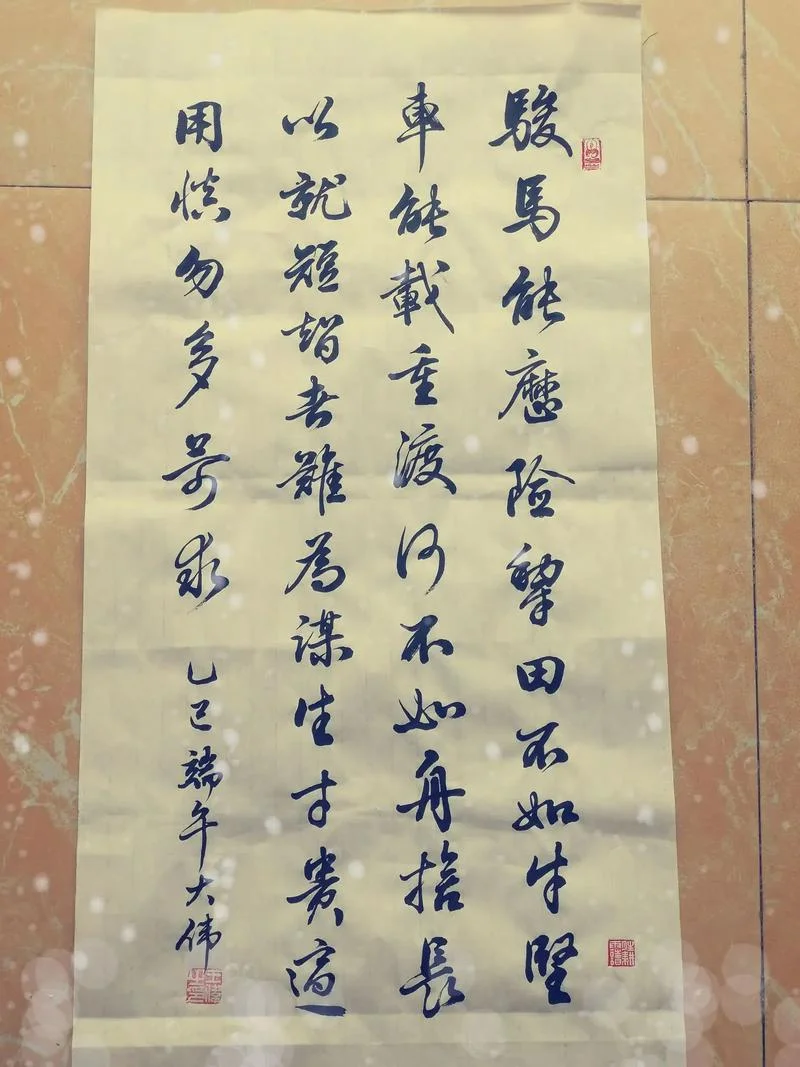 駿馬能歷险犂田不如牛堅
車能載重渡河不如舟捨長
以就短智者難為謀生才貴適
用慎勿多苛求
乙巳端午大伟